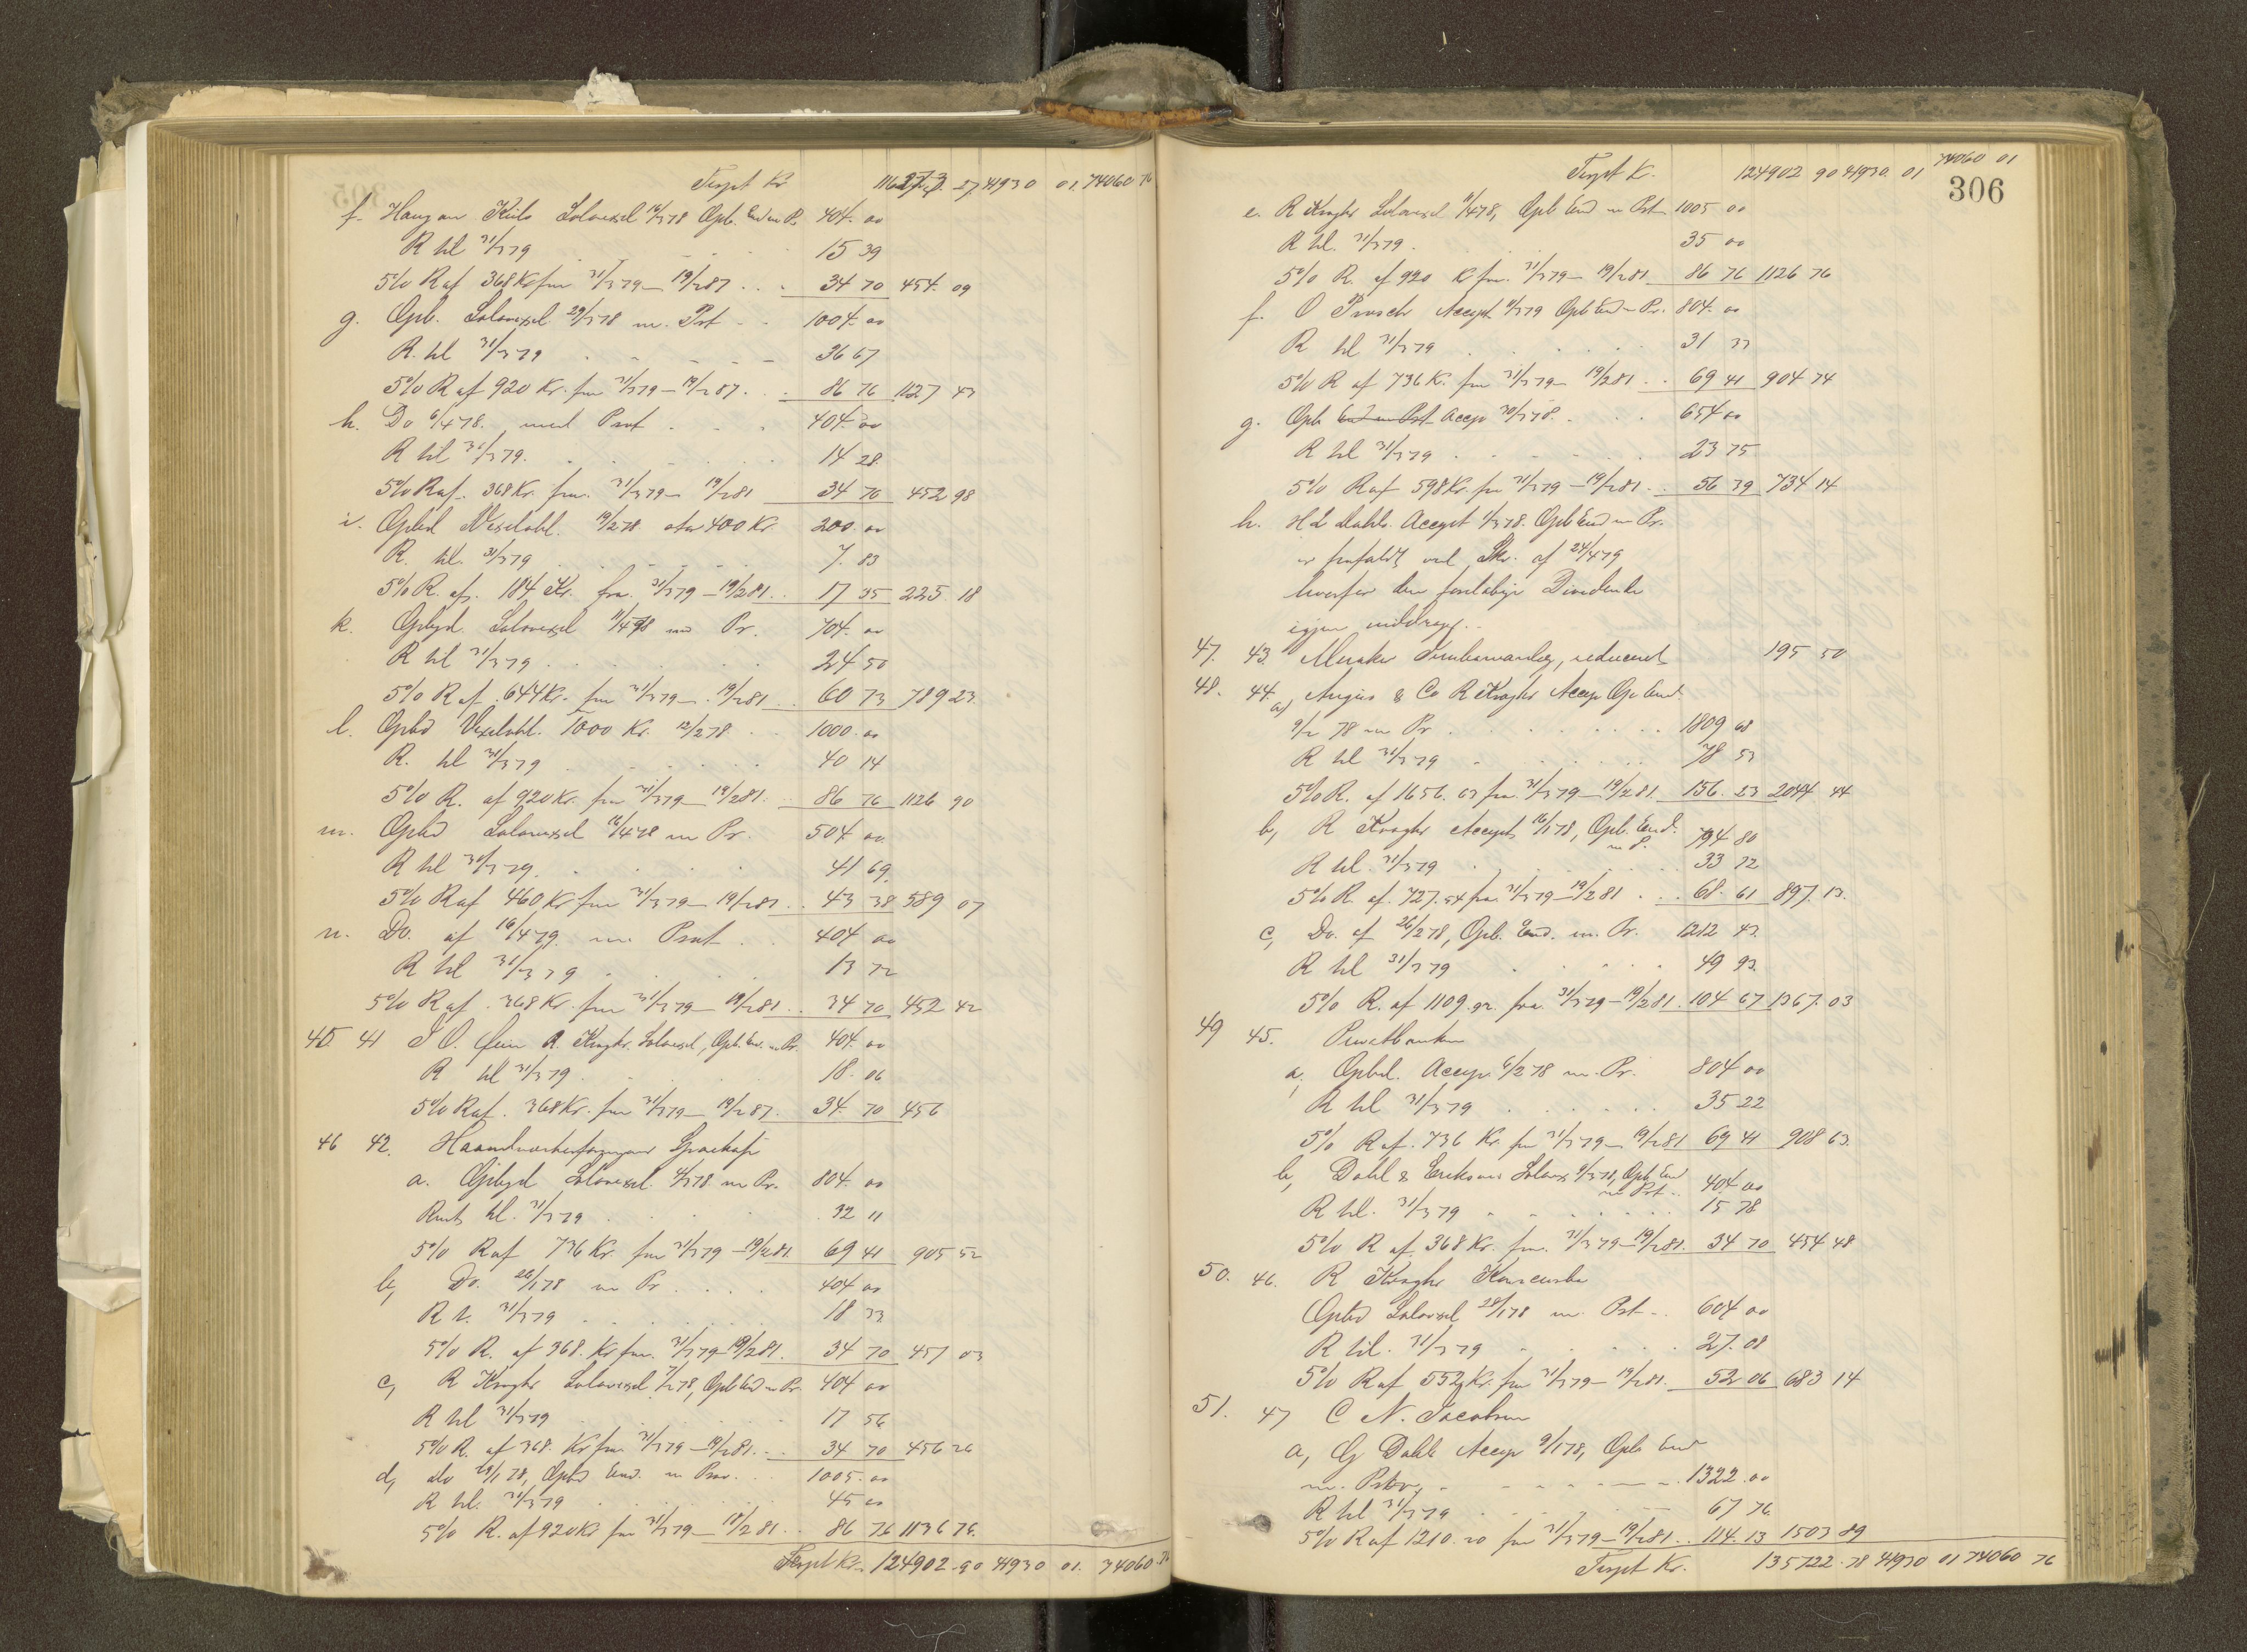 Trspt Kr 41930 01. 74060 76
f. Solavexel 16/3 78 Opb. End m P. 404. 00
R til 31/3 79 15 39
5% R af 368 Kr fra 31/3 79 – 19/2 81 34 70 454. 09
g. Opb. Solavexel 29/3 78 m. Pst 1004. 00
R. til 31/3 79 36 67
5% R af 920 Kr. fra 31/3 79 – 19/2 81. 86 76 1127 43
h. Do 6/4 78. med Prot 404. 00
R til 31/3 79. 14 28
5% R af 368 Kr. fra 31/3 79 – 19/2 81 34 70 452 98
i. Opbd 19/2 78 400 Kr. 200. 00
R. til. 31/3 79 7. 83
5% R. af. 184 Kr. fra. 31/3 79 – 19/2 81. 17 35 225 18
k. Solavexel 11/4 78 m Pr. 704. 00
R til 31/3 79 24 50
5% R af 644 Kr. fra 31/3 79 – 19/2 81 60 73 789 23
l. Opbd 1000 Kr. 12/2 78 1000. 00
R. til 31/3 79 40 14
5% R. af 920 Kr. fra 31/3 79 – 19/2 81. 86 76 1126 90
m. Opbd Solavexel 16/4 78 m Pr. 504. 00
R til 31/3 79. 41 69
5% R af 460 Kr fra 31/3 79 – 19/2 81. 43 38 589 07
n. Do. af 16/4 79. m. Prot 404 00
R til 31/3 79 13 72
5% R af 368 Kr. fra 31/3 79 – 19/2 81. 34 70 452 42
45 41 R. Krogh Solavexel, Opb. End. m Pr. 404. 00
R til 31/3 79 18. 06
5% R af. 368 Kr. fra 31/3 79 – 19/2 81. 34. 70 456
46 42.
a. Opbyd Solavexel. m Pr. 804. 00
Rent til. 31/3 79 32 11
5% R af 736 Kr. fra 31/3 79 – 19/2 81. 69 41 905 52
b, Do. 26/1 78 m Pr 404 00
R t. 31/3 79 18 33
5% R. af 368. Kr fra. 31/3 79 – 19/2 81. 34 70 457 03
c, R Krogh Solavexel 7/2 78, Opb End m Pr. 404 00
R til 31/3 79 17 56
5% R. af 368. Kr fra. 31/3 79 – 19/2 81. 34 70 456 26
d, do 28/1 78, Opbd End. m Prov. 1005. 00
R til. 31/3 79 45 00
5% R. af 920 Kr fra 31/3 79 – 19/2 81. 86 76 1136 76.
Trspt Kr. 124902. 90 41930 01. 74060
Trspt K. 124902 90 41930. 01 74060 01
306
e. R Krogh Solavexel 11/4 78, Opb End m Pst 1005 00
R til. 31/3 79. 35 00
5% R. af 920 Kr fra. 31/3 79 – 19/2 81. 86 76 1126 76
f. Accept Opb End m Pr. 804. 00
R til 31/3 79 31 33
5% R af 736 K. fra 31/3 79 – 19/2 81 69 41 904 74
g. Opb End m Prst Accep 30/3 78. 654 00
R til 31/3 79 23 75
5% R af 598 Kr. fra 31/3 79 – 19/2 81. 56 39 734 14
h. Dahls Accept 1/3 78. Opb End m Pr.
er frafaldt ved Skr. af 24/4 79
hvorfor den foreløbige Dividende
igjen inddrages.
47. 43. reduceret 195 50
48. 44. a) & Co R Krogh Accep Op End.
9/2 78 m Pr 1809 68
R til 31/3 79 78 53
5% R. af 1656. 63 fra. 31/3 79 – 19/2 81. 156. 23 2044 44
b, R Krogh Accept 16/1 78, Opb. End. m P. 794 80
R til. 31/3 79 33 72
5% R. af. 727. 54 fra. 31/3 79 – 19/2 81 68. 61 897. 13.
c, Do. af 26/2 78, Opb. End. m. Pr. 1212 43
R til 31/3 79 49 93.
5% R. af 1109. 92. fra. 31/3 79 – 19/2 81. 104 67 1367. 03
49 45. Privatbanken
a, Opbd. Accep. 6/2 78 m. Pr. 804 00
R til 31/3 79 35 22
5% R af. 736 Kr. fra 31/3 79 – 19/2 81 69 41 908 63.
b, Dahl & Eriksens Solavex 9/3 78, Opb End m Pst 404 00
R til. 31/3 79 15 78
5% R af. 368 Kr. fra. 31/3 79 – 19/2 81. 34 70 454 48
50. 46. R Krogh
Opbd Solavexel 28/1 78 m. Pst 604 00
R til. 31/3 79 27. 08
5% R af 552 Kr. fra 31/3 79 – 19/2 81. 52 06 683 14
51. 47 C N. Jacobsen
a, Dahl Accep 9/1 78, Opb End
m. Prov. 1322. 00
R til 31/3 79 67 76
5% R af 1210. 20 fra 31/3 79 – 19/2 81. 114. 13 1503 89
Trspt Kr. 135722. 78 41930 01 74060 76